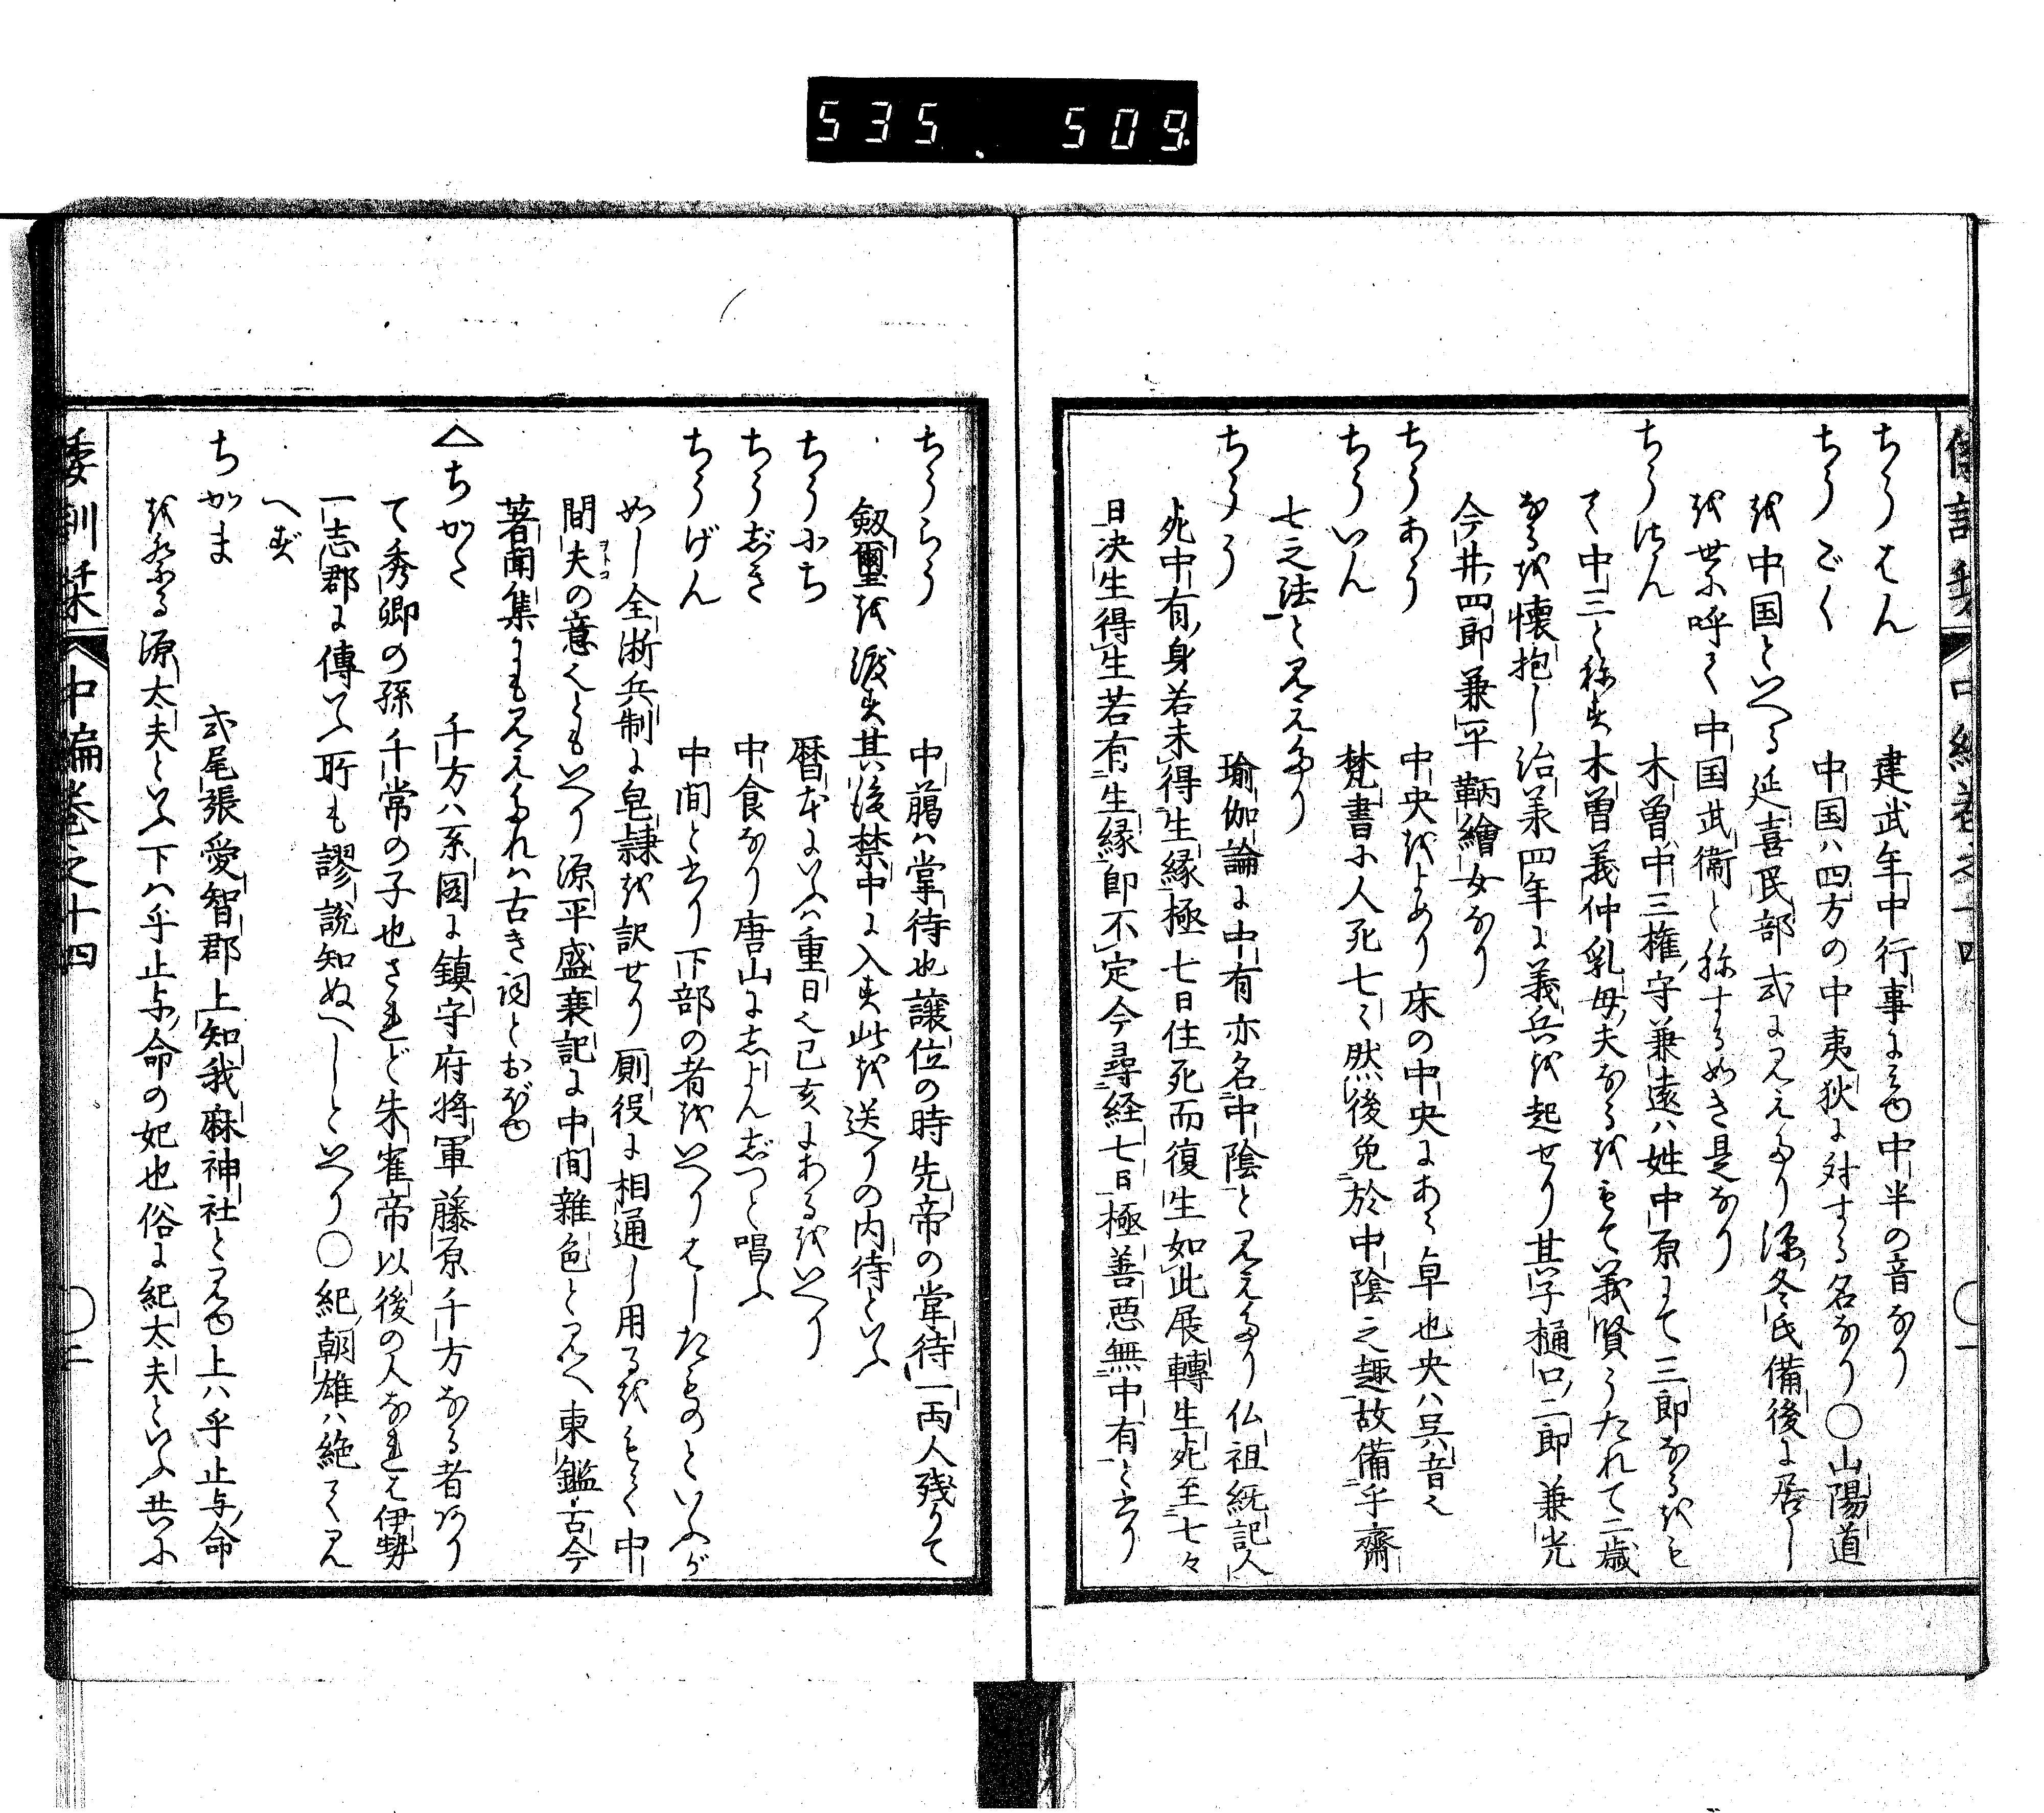 535. 509.
倭訓栞 中編巻之十四 〇一
ちうはん 建武年中行事にみゆ中半の音なり
ちうごく 中国ハ四方の中夷狄に対する名なり〇山陽道
を中国といへる延喜民部式に見えたり源冬氏備後に居し
を世に呼て中国武衛と称する如き是なり
ちうさん 木曽中三権守兼遠ハ姓中原にて三郎なるをも
て中三と称す木曽義仲乳母夫なるをもて義賢うたれて二歳
なるを懐抱し治承四年に義兵を起せり其子樋口二郎兼光
今井四郎兼平鞆繪女なり
ちうあう 中央をよめり床の中央にあく卓也央ハ呉音也
ちういん 梵書に人死七々然後免於中陰之趣故備乎齋
七之法と見えたり
ちうう 瑜伽論に中有亦名中陰と見えたり仏祖統記人
死中有身若未得生縁極七日住死而復生如此展轉生死至七々
日决生得生若有生縁即不定今尋経七日極善悪無中有と書り
ちうらう 中﨟ハ掌侍也譲位の時先帝の掌侍一両人残りて
劔璽を渡す其後禁中に入す此を送りの内侍といふ
ちうにち 暦本にいふハ重日也己亥にあるをいへり
ちうじき 中食なり唐山にしよんじつと唱ふ
ちうげん 中間と書り下部の者をいへりはしたものといふが
如し全浙兵制に皂隷を訳せり厠役に相通し用るをもて中
間夫の意也ともいへり源平盛衰記に中間雑色と見へ東鑑古今
ヲトコ
著聞集にも見えたれハ古き詞とおぼゆ
△ちかた 千方ハ系圖に鎮守府将軍藤原千方なる者あり
て秀郷の孫千常の子也されど朱雀帝以後の人なれは伊勢
一志郡に傳いふ所も謬説知ぬへしといへり〇紀朝雄ハ絶て見
へず
ちかま 式尾張愛智郡上知我麻神社と見ゆ上ハ乎止与命
を祭る源太夫といふ下ハ乎止与命の妃也俗に紀太夫といふ共に
倭訓栞 中編巻之十四 〇二